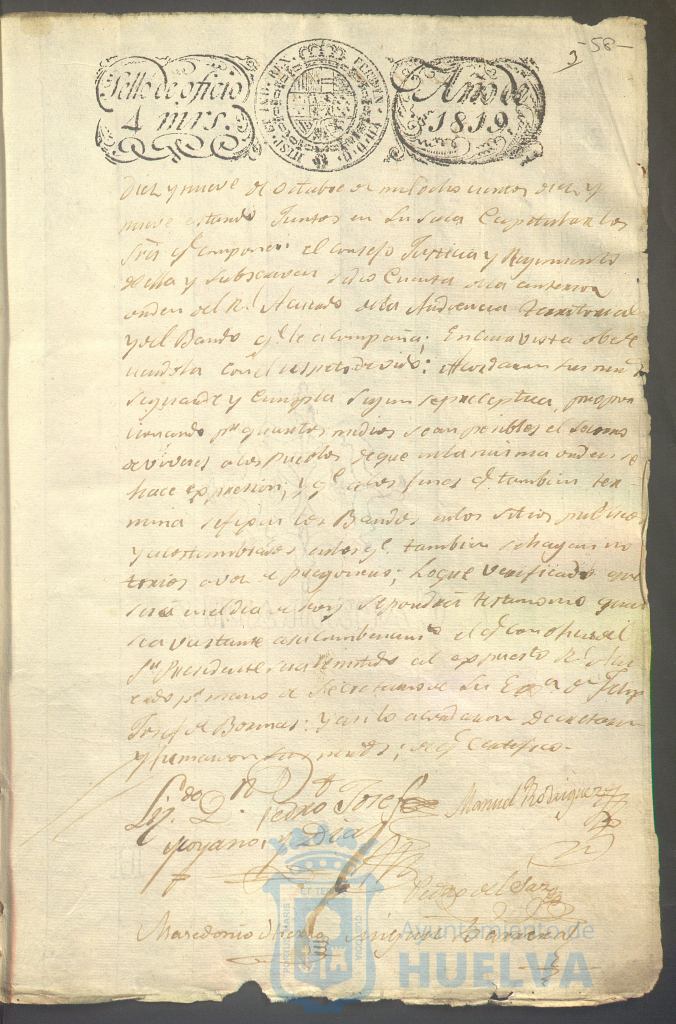 3 -58-
Sello de oficio
4 mrs.
HISP. ET IND. REX. FERDIN. VII. D. G.
Año de
1819.
Diez y nueve de Octubre de mil ocho cientos diez y
nueve estando Juntos en su Sala Capitular los
Sres qe componen el Consejo Justicia y Regimiento
de ella y subscriven se dio Cuenta de la anterior
orden del Rl Acuerdo de la Audiencia Territorial
y del Bando qe le acompaña; En cuya vista obede
ciendola con el respeto devido: Acordaron sus mrds
se guarde y Cumpla segun se preceptua, propor
cionando pr quantos medios sean posibles el Socorro
de viveres a los Pueblos de que en la misma orden se
hace expresion, y qe a los fines qe tambien ter
mina se fijen los Bandos en los sitios publicos
y acostumbrados, en los qe tambien se hagan no
torios a voz de pregonero; Lo que verificado que
sea en el dia de hoy se pondrá testimonio que
sea vastante
el qe con oficio del
Sr Presidente sea remitido al expuesto Rl Acu
erdo pr mano de Secretario de Su Exa Dn Felip
Josef de Bormas: y asi lo acordaron Decretaron
y firmaron sus mrds; de qe Certifico.
Liz.do Dn Pedro Josef
Moyano, y Dia
Manuel Rodriguez
Pedro del
Macedonio
Miguel Barrera
Ayuntamiento de
HUELVA